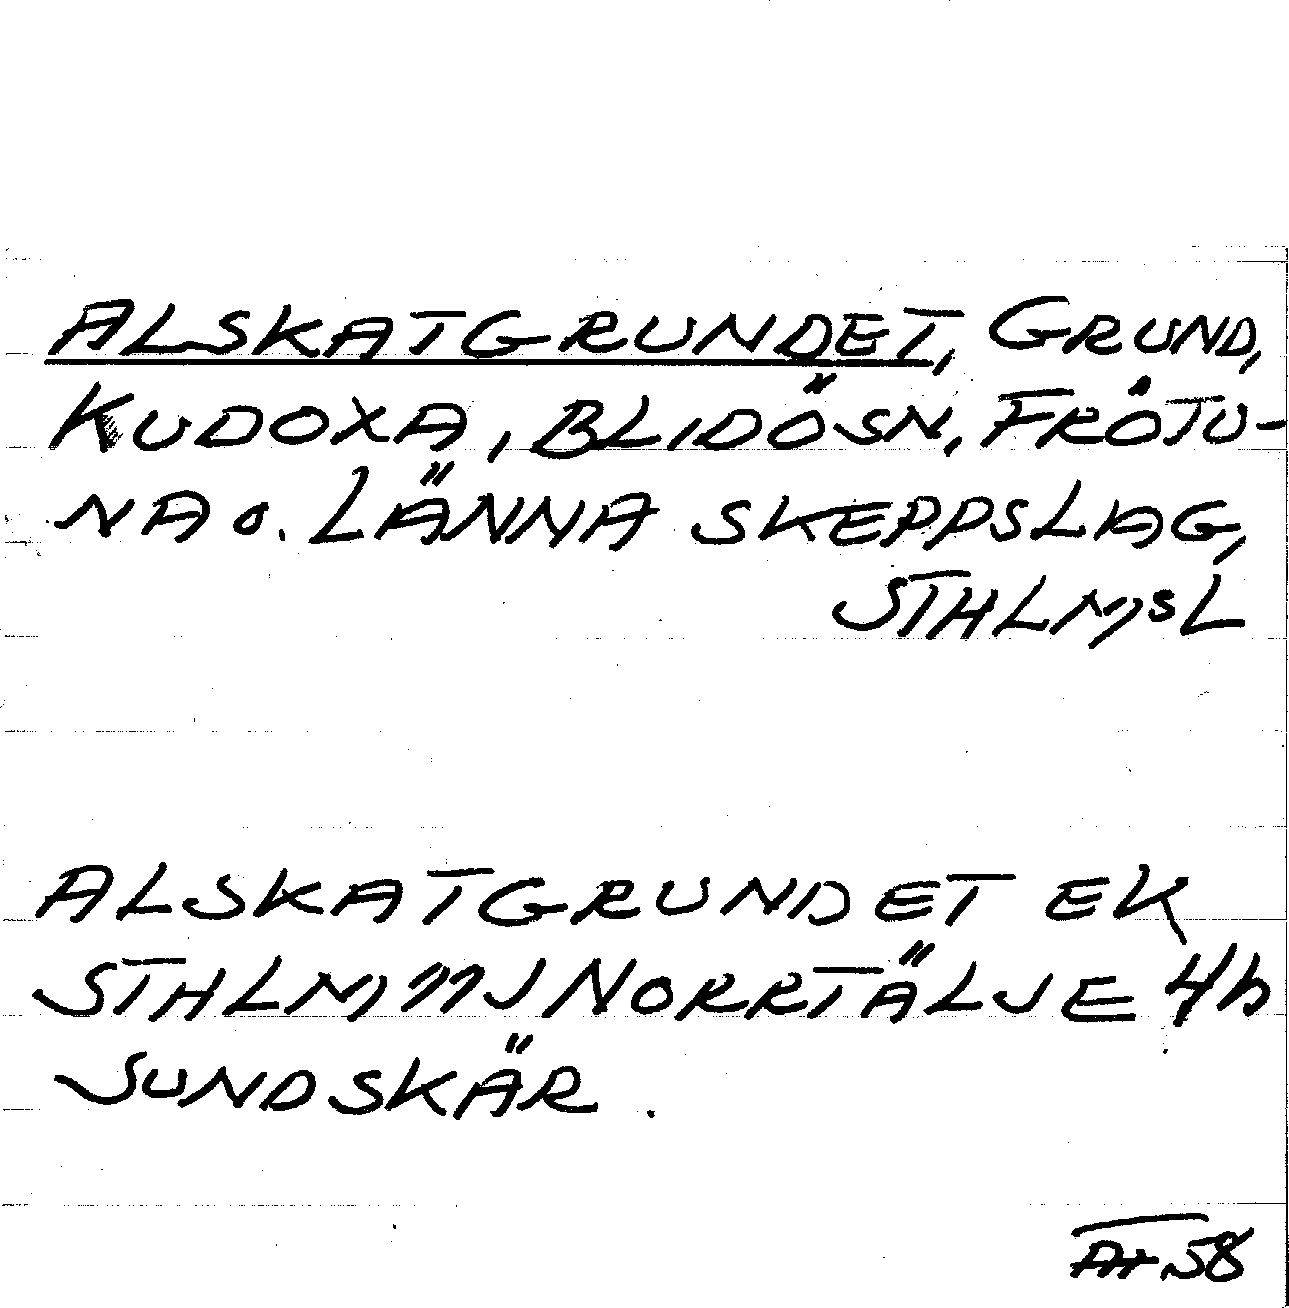 ALSKATGRUNDET, GRUND,
KUDOXA, BLIDÖSN, FRÖTU-
NA O. LÄNNA SKEPPSLAG,
STHLMSL
ALSKATGRUNDET EK
STHLM 11J NORRTÄLJE 4b
SUNDSKÄR.
58